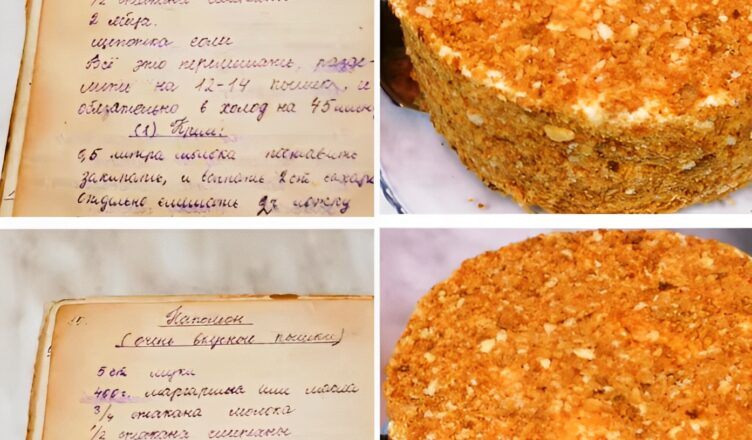 1/2 стакана сметаны
2 яйца.
щепотка соли
Всё это перемешать, разде-
лить на 12-14 пышек, и
обязательно в холод на 45 мин
(1) Крем:
0,5 литра молока поставить
закипать, и всыпать 2 ст сахара
отдельно смешать 2 ложку
Наполеон
(очень вкусный пышки)
5 ст муки
400г. маргарина или масла
3/4 стакана молока
1/2 стакана сметаны